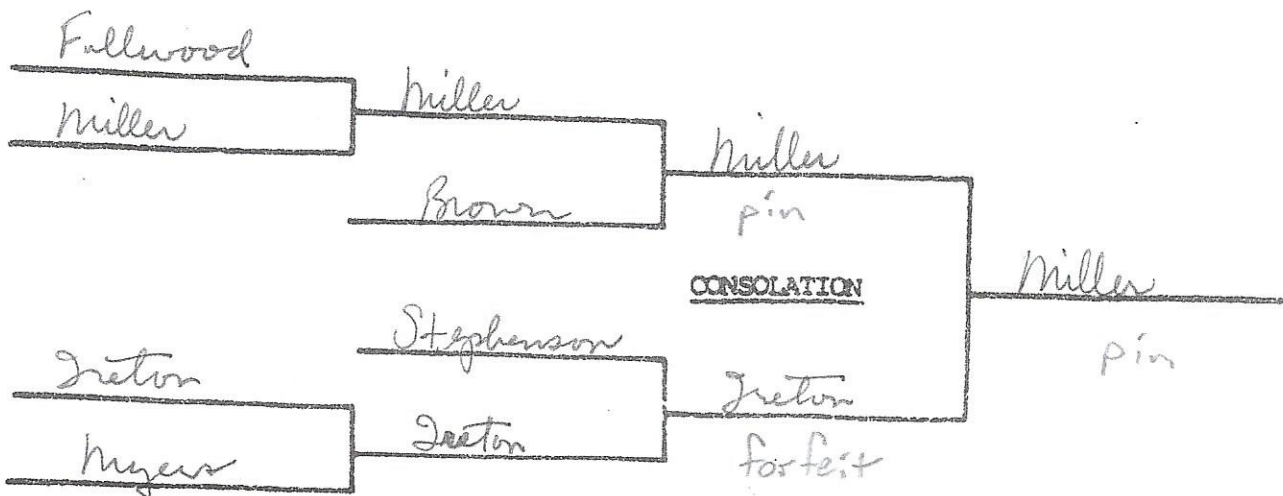 Fullwood
Miller
Miller
Brown
Miller
pin
CONSOLATION
Miller
pin
Stephenson
Ireton
Ireton
Myers
Ireton
forfeit